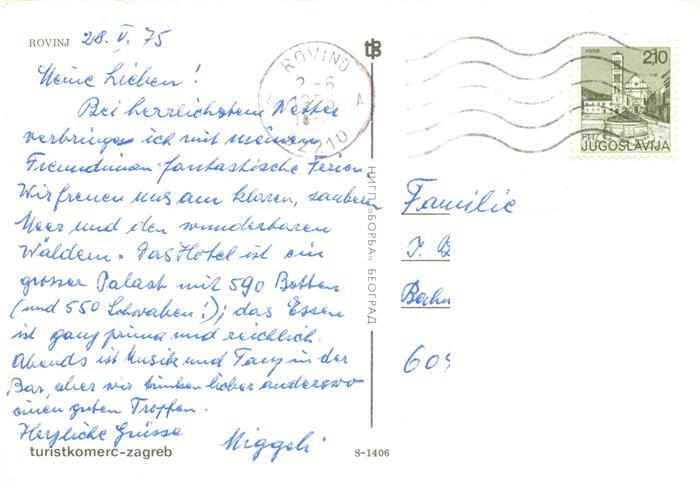 ROVINJ 28. V. 75
Meine Lieben!
Bei herrlichstem Wetter
verbringe ich mit meinen
Freundinnen fantastische Ferien.
Wir freuen uns am klaren, saubern
Meer und den wunderbaren
Wäldern. Das Hotel ist ein
grosser Palast mit 590 Betten
(und 550 Schwaben!); das Essen
ist ganz prima und reichlich.
Abends ist Musik und Tanz in der
Bar, aber wir trinken lieber anderswo
einen guten Tropfen.
Herzliche Grüsse
Miggeli
turistkomerc-zagreb
S-1406
НИГП „БОРБА“ БЕОГРАД
ROVINJ
2-6
A
HVAR
2,10
JUGOSLAVIJA
Familie
J. B
Bahn
609